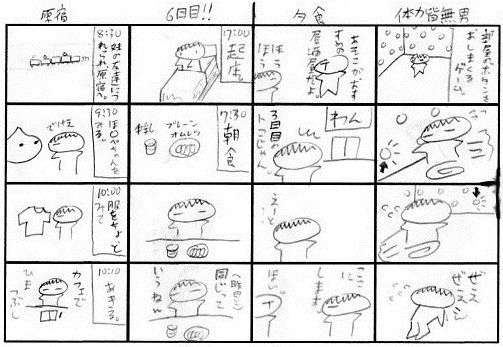 体力皆無男
部屋のボタンを
おしまくる
ゲーム。
ぜえ
ぜえ
夕食
あそこがおす
すめの
居酒屋だよ。
ほう
ほう
わん
3日目の
トコじゃん。
えーと
ここに
します。
はい。
6日目!!
7:00
起床。
7:30
朝食
プレーン
オムレツ
牛乳
(昨日と)
同じって
いうねん
原宿
8:30
妹の友達につ
れられ、原宿へ。
9:30
みる。
でけえ
10:00
服をちょっと
みて
10:10
あきる。
カフェで
ひま
つぶし